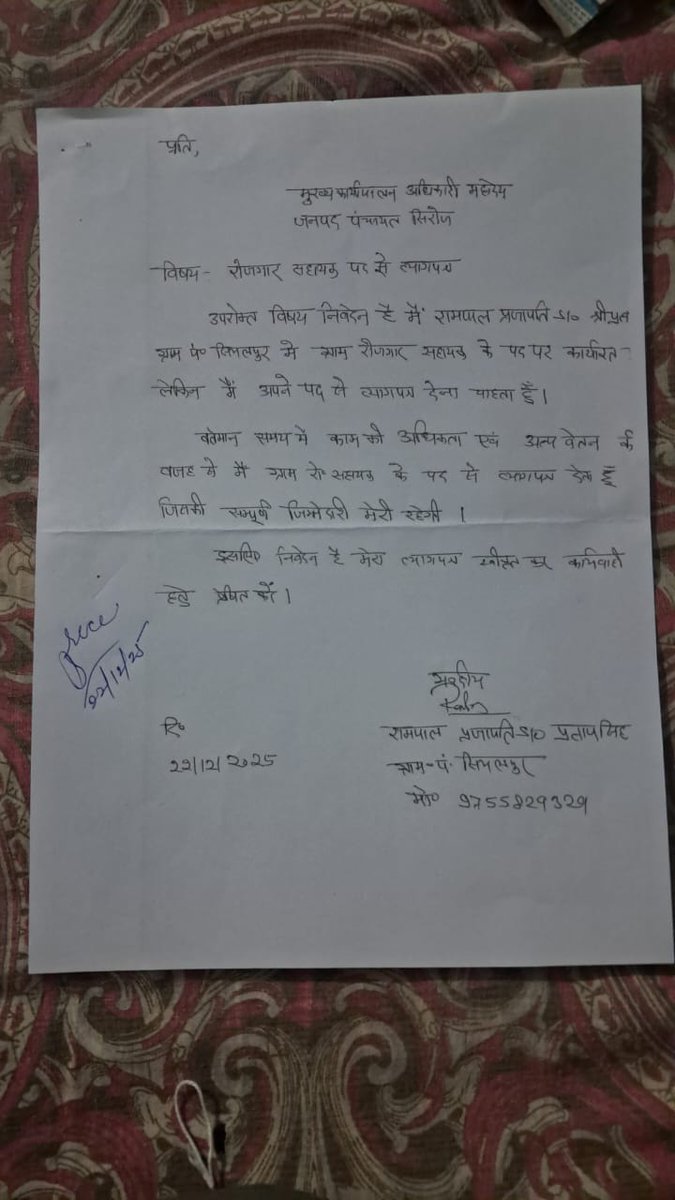 प्रति,
मुख्य कार्यपालन अधिकारी महोदय
जनपद पंचायत सिरोंज
विषय - रोजगार सहायक पद से त्यागपत्र
उपरोक्त विषय निवेदन है मैं रामपाल प्रजापति S/o श्री
ग्राम पं० में ग्राम रोजगार सहायक के पद पर कार्यरत
लेकिन मैं अपने पद से त्यागपत्र देना चाहता हूँ।
वर्तमान समय में काम की अधिकता एवं अल्प वेतन की
वजह से मैं ग्राम रो० सहायक के पद से त्यागपत्र देता हूँ
जिसकी सम्पूर्ण जिम्मेदारी मेरी रहेगी।
इसलिए निवेदन है मेरा त्यागपत्र स्वीकृत कर कार्यवाही
हेतु प्रेषित करें।
22/12/25
दि०
22/12/2025
रामपाल प्रजापति S/o प्रतापसिंह
ग्राम-पं.
मो० 9755829329